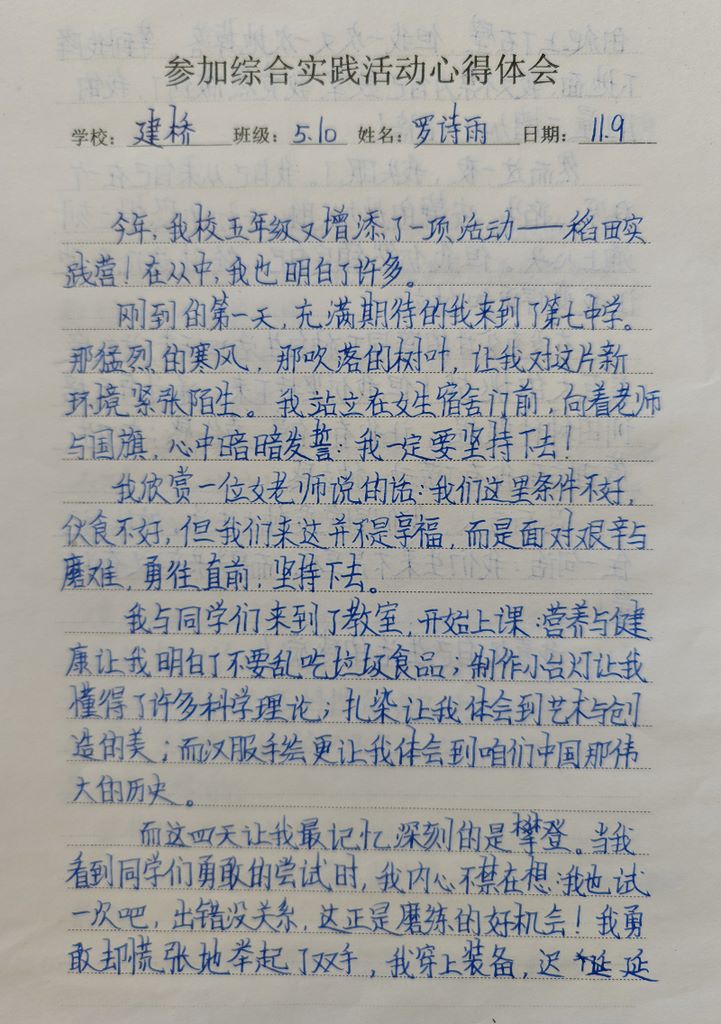 参加综合实践活动心得体会
学校：建桥 班级：5.10 姓名：罗诗雨 日期：11.9
今年，我校五年级又增添了一项活动——稻田实
践营！在从中，我也明白了许多。
刚到的第一天，充满期待的我来到了第七中学。
那猛烈的寒风，那吹落的树叶，让我对这片新
环境紧张陌生。我站立在女生宿舍门前，向着老师
与国旗，心中暗暗发誓：我一定要坚持下去！
我欣赏一位女老师说的话：我们这里条件不好，
伙食不好，但我们来这并不是享福，而是面对艰辛与
磨难，勇往直前，坚持下去。
我与同学们来到了教室，开始上课：营养与健
康让我明白了不要乱吃垃圾食品；制作小台灯让我
懂得了许多科学理论；扎染让我体会到艺术与创
造的美；而汉服手绘更让我体会到咱们中国那伟
大的历史。
而这四天让我最记忆深刻的是攀登。当我
看到同学们勇敢的尝试时，我内心不禁在想：我也试
一次吧，出错没关系，这正是磨练的好机会！我勇
敢却慌张地举起了双手，我穿上装备，迟延延